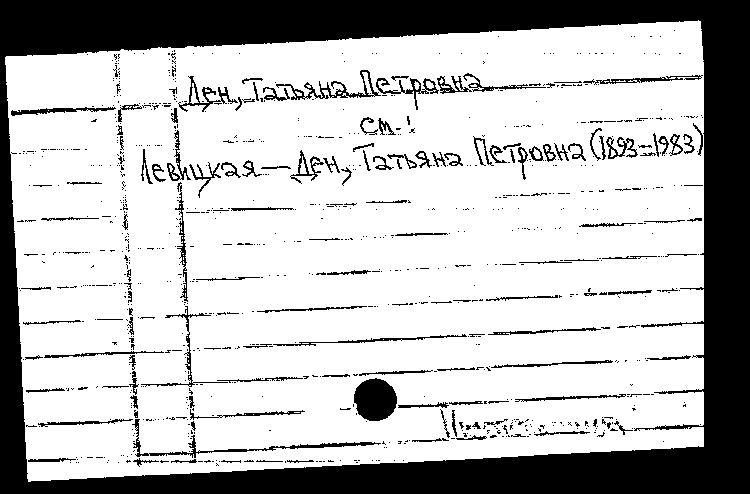 Ден, Татьяна Петровна
см.:
Левицкая — Ден, Татьяна Петровна (1893-1983)